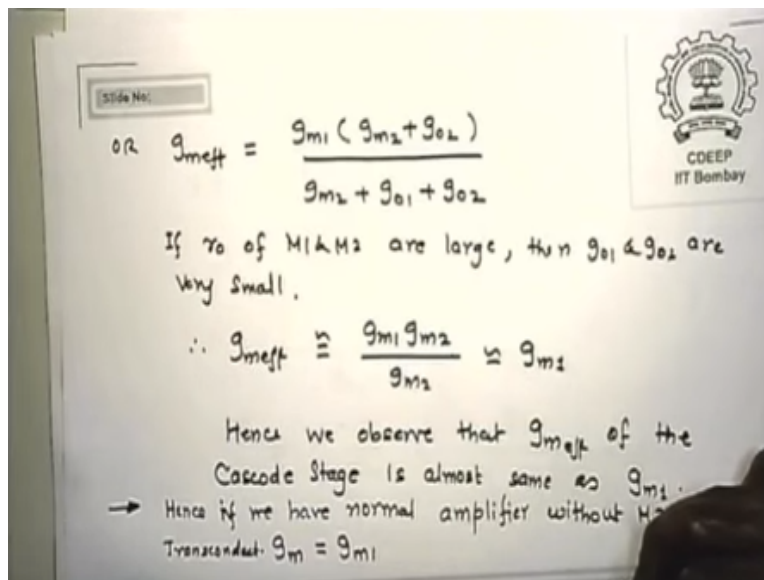 Slide No:
CDEEP
IIT Bombay
OR gmeff = gm1 ( gm2 + go2 ) / gm2 + go1 + go2
If ro of M1 & M2 are large, then go1 & go2 are
Very Small.
∴ gmeff ≅ gm1 gm2 / gm2 ≃ gm1
Hence we observe that gmeff of the
Cascode Stage is almost same as gm1.
→ Hence if we have normal amplifier without
Transconduct. gm = gm1